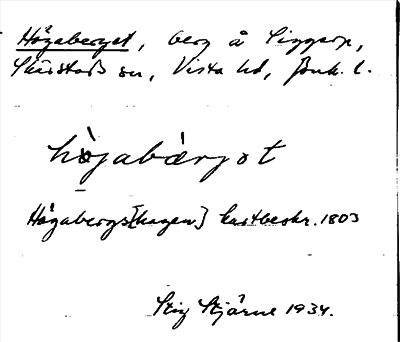 Högaberget, berg å Siggarp,
Skärstads sn, Vista hd, Jönk. l.
högabärjet
Högabergs[hagen] kartbeskr. 1803
Stig Stjärne 1934.